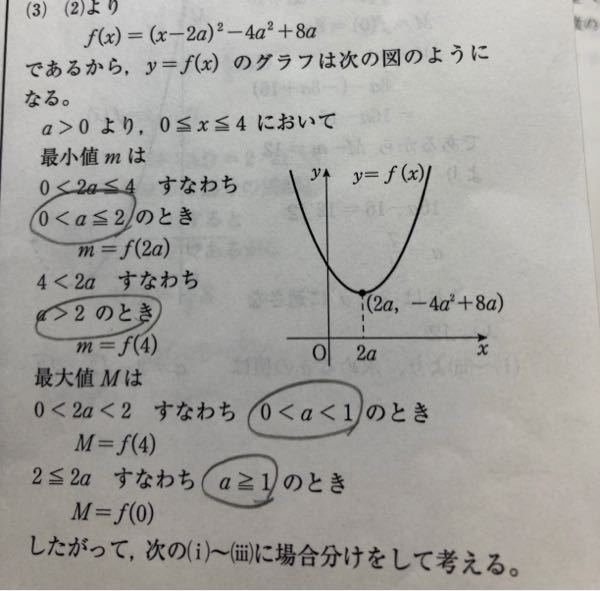 (3) (2)より
f(x)=(x-2a)²-4a²+8a
であるから，y=f(x) のグラフは次の図のように
なる。
a>0 より，0≦x≦4 において
最小値 m は
0<2a≦4 すなわち
0<a≦2 のとき
m=f(2a)
4<2a すなわち
a>2 のとき
m=f(4)
y
y=f(x)
(2a, -4a²+8a)
O 2a x
最大値 M は
0<2a<2 すなわち 0<a<1 のとき
M=f(4)
2≦2a すなわち a≧1 のとき
M=f(0)
したがって，次の(ⅰ)〜(ⅲ)に場合分けをして考える。